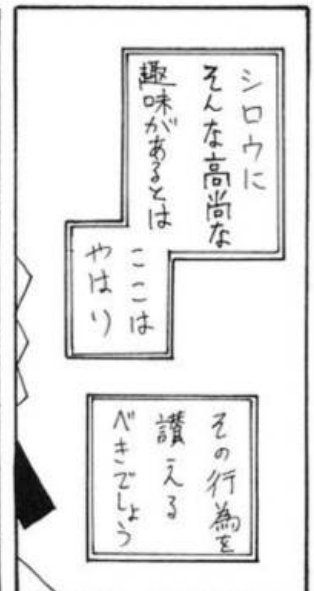 シロウに
そんな高尚な
趣味があるとは
ここは
やはり
その行為を
讃える
べきでしょう